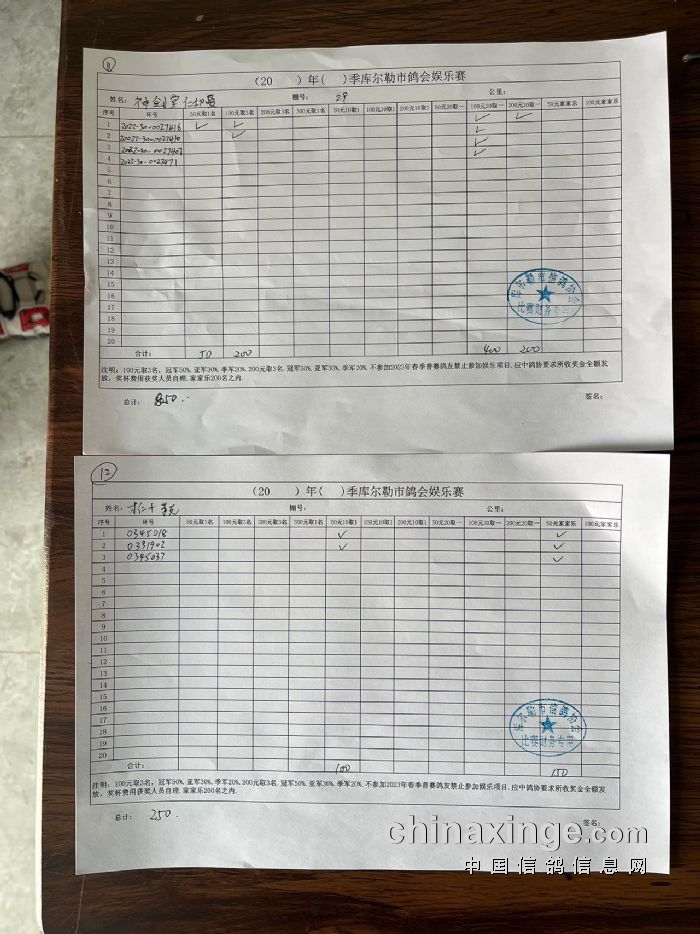 11
（20　　）年（　）季库尔勒市鸽会娱乐赛
姓名： 棚号： 29 公里：
序号 环号 50元取1名 100元取3名 200元取3名 300元取1名 50元10取1 100元10取1 200元10取1 50元20取一 100元20取一 200元20取一 50元家家乐 100元家家乐
1 2022-30-0027416 ✓ ✓ ✓ ✓
2 ✓ ✓
3 ✓
4 2022-30-0027471 ✓
5
6
7
8
9
10
11
12
13
14
15
16
17
18
19
20
合计： 50 200 400 200
库尔勒市信鸽协会
比赛财务专用
注明：100元取3名，冠军50%.亚军30%.季军20%.200元取3名.冠军50%.亚军30%.季军20%.不参加2023年春季普赛鸽友禁止参加娱乐项目.应中鸽协要求所收奖金全额发
放，奖杯费用获奖人员自理.家家乐200名之内.
总计： 850.- 签名：
12
（20　　）年（　）季库尔勒市鸽会娱乐赛
姓名： 棚号： 公里：
序号 环号 50元取1名 100元取3名 200元取3名 300元取1名 50元10取1 100元10取1 200元10取1 50元20取一 100元20取一 200元20取一 50元家家乐 100元家家乐
1 0345018 ✓ ✓
2 0331902 ✓ ✓
3 0345037 ✓
4
5
6
7
8
9
10
11
12
13
14
15
16
17
18
19
20
合计： 100 150
库尔勒市信鸽协会
比赛财务专用
注明：100元取3名，冠军50%.亚军30%.季军20%.200元取3名.冠军50%.亚军30%.季军20%.不参加2023年春季普赛鸽友禁止参加娱乐项目.应中鸽协要求所收奖金全额发
放，奖杯费用获奖人员自理.家家乐200名之内.
总计： 250.- 签名：
chinaxinge.com
中国信鸽信息网